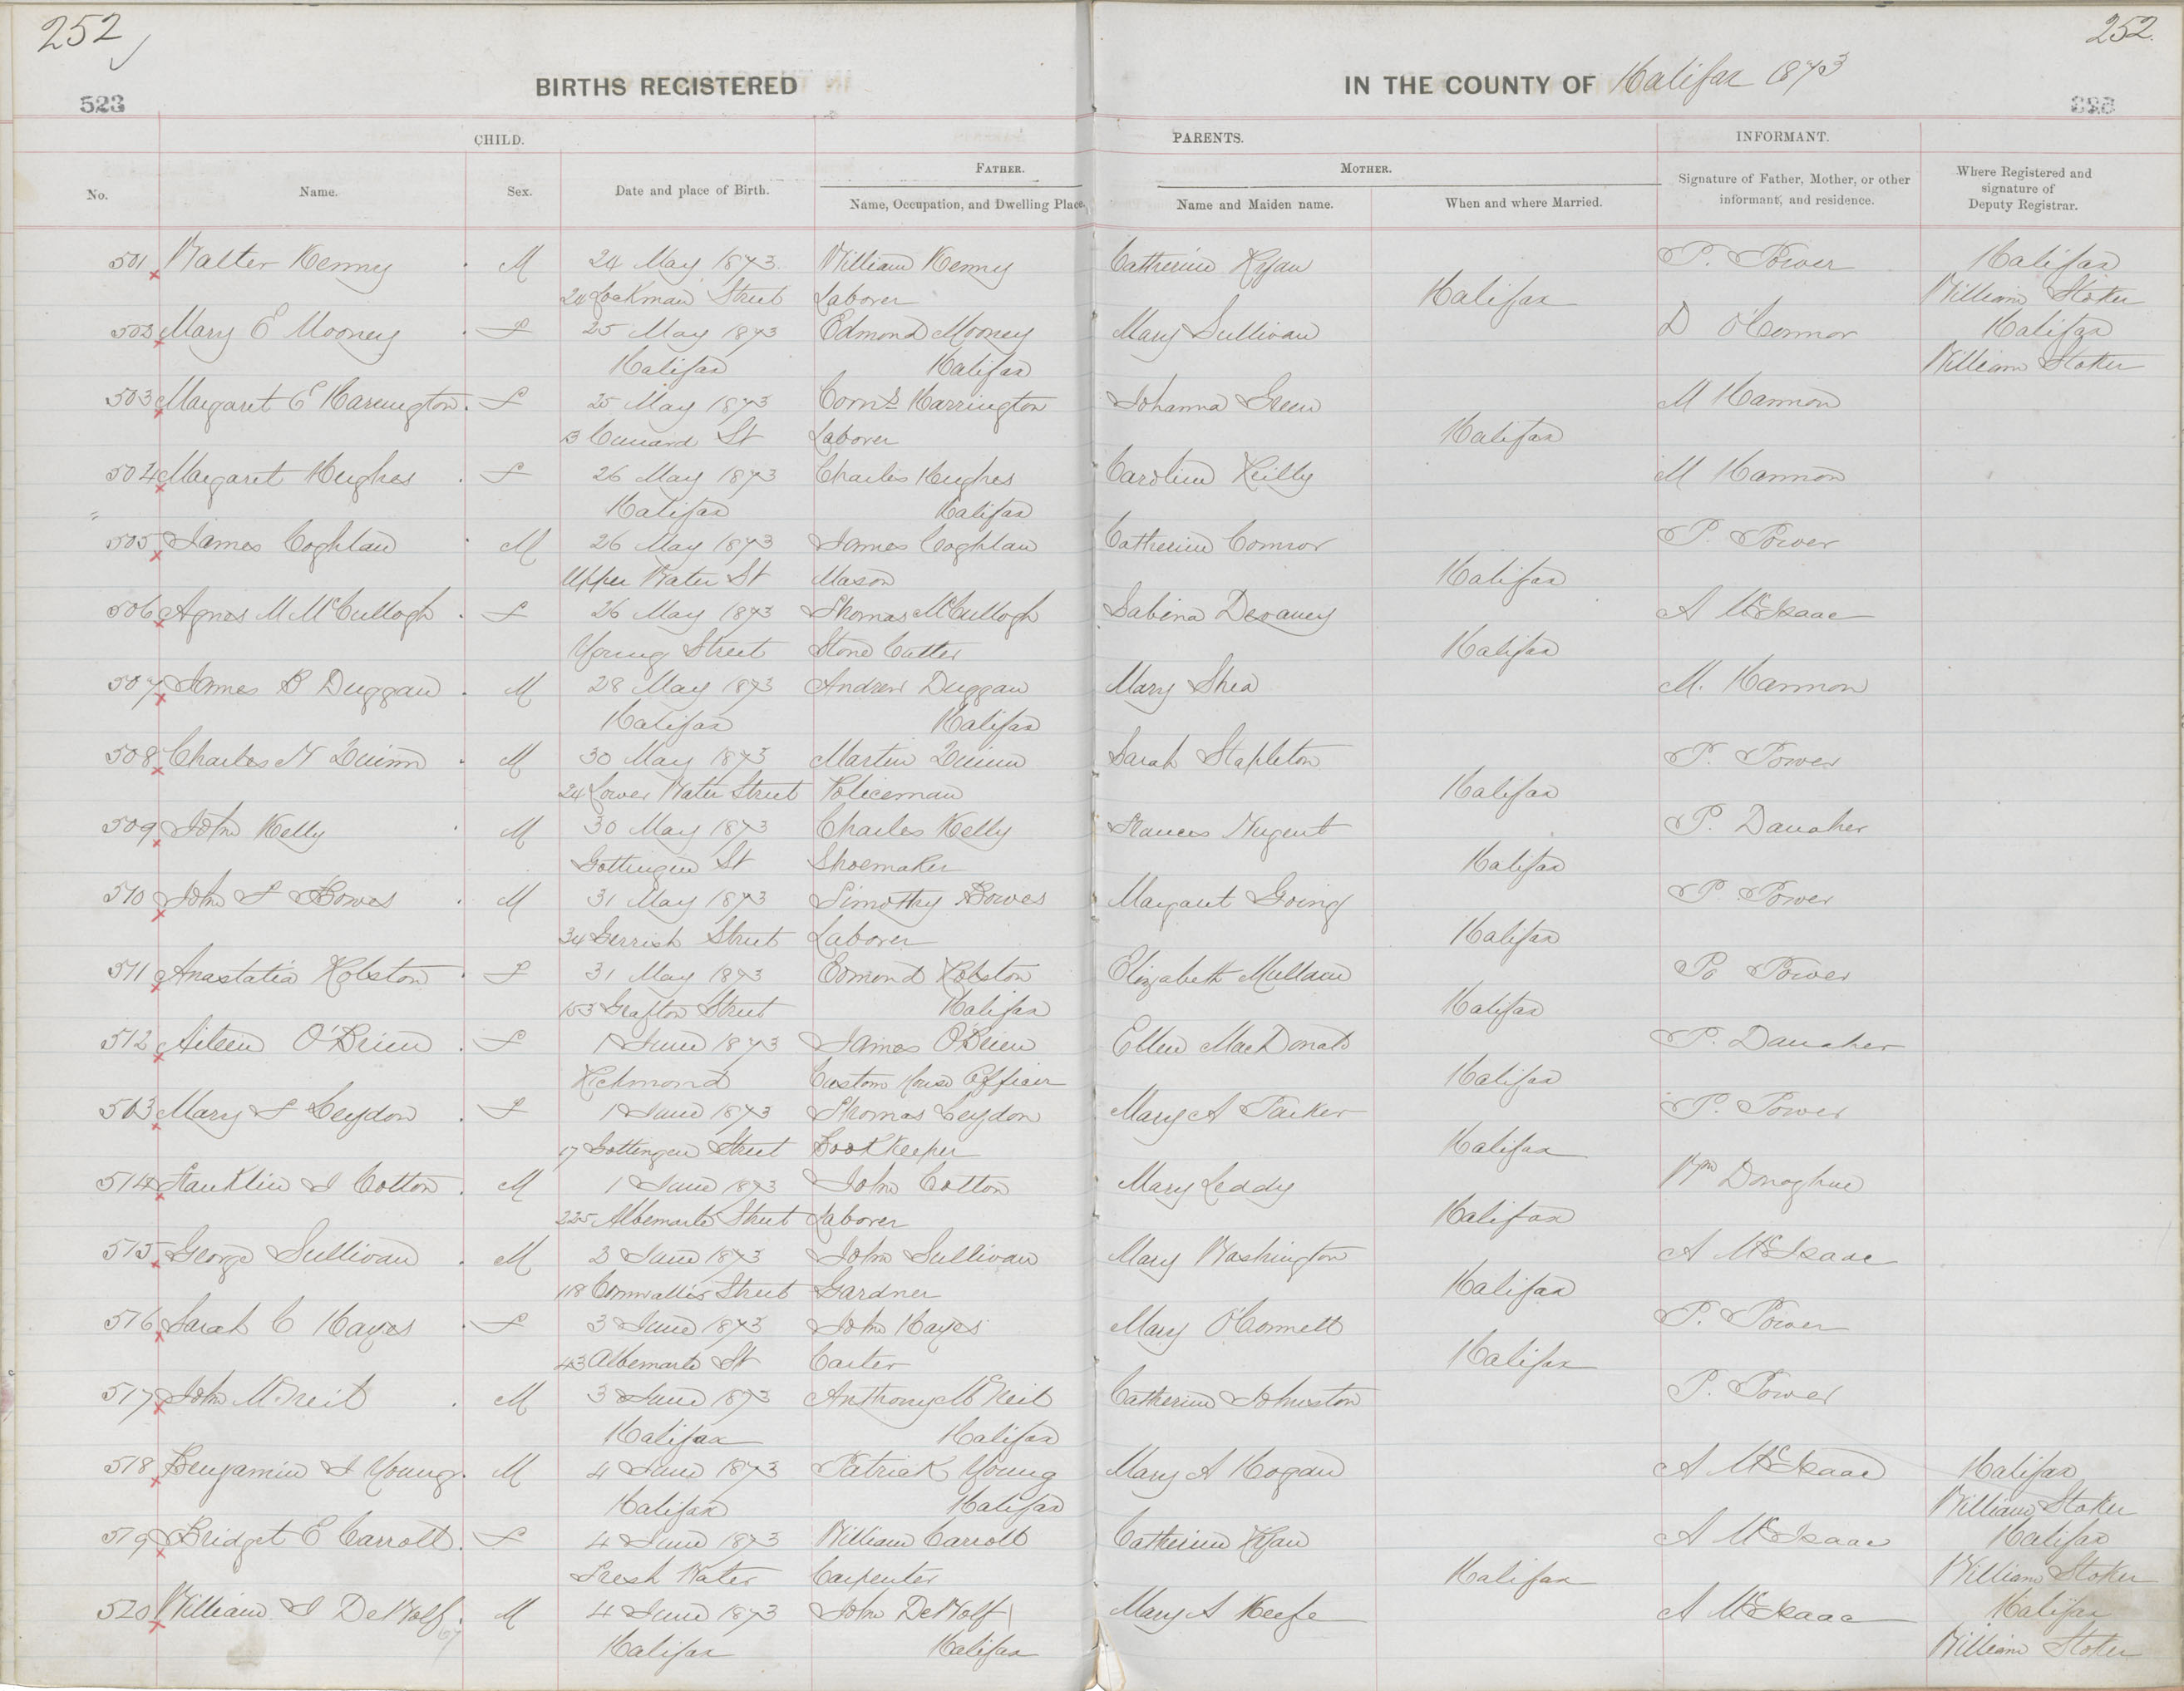 252
252.
BIRTHS REGISTERED IN THE COUNTY OF Halifax 1873
523
CHILD. PARENTS. INFORMANT.
FATHER. MOTHER.
No. Name. Sex. Date and place of Birth. Name, Occupation, and Dwelling Place. Name and Maiden name. When and where Married. Signature of Father, Mother, or other informant, and residence. Where Registered and signature of Deputy Registrar.
501 Walter Kenny M 24 May 1873. William Kenny Catherine Ryan P. Power Halifax
24 Lockman Street Laborer Halifax William Stoker
502 Mary E Mooney F 25 May 1873 Edmond Mooney Mary Sullivan D O'Connor Halifax
Halifax Halifax William Stoker
503 Margaret E Harrington F 25 May 1873 Corns Harrington Johanna Green M Hannon
13 Cunard St Laborer Halifax
504 Margaret Hughes F 26 May 1873 Charles Hughes Caroline Reilly M Hannon
Halifax Halifax
505 James Coghlan M 26 May 1873 James Coghlan Catherine Connor P. Power
Upper Water St Mason Halifax
506 Agnes M McCullogh F 26 May 1873 Thomas McCullogh Sabina Devaney A McIsaac
Young Street Stone Cutter Halifax
507 James B Duggan M 28 May 1873 Andrew Duggan Mary Shea M. Hannon
Halifax Halifax
508 Charles H Quinn M 30 May 1873 Martin Quinn Sarah Stapleton P. Power
24 Lower Water Street Policeman Halifax
509 John Kelly M 30 May 1873 Charles Kelly Frances Nugent P. Danaher
Gottingen St Shoemaker Halifax
510 John F Bowes M 31 May 1873 Timothy Bowes Margaret Going P. Power
34 Gerrish Street Laborer Halifax
511 Anastatia Robston F 31 May 1873 Edmond Robston Elizabeth Mullane P. Power
153 Grafton Street Halifax Halifax
512 Aileen O'Brien F 1 June 1873 James O'Brien Ellen MacDonald P. Danaher
Richmond Custom House Officer Halifax
513 Mary F Leydon F 1 June 1873 Thomas Leydon Mary A Parker P. Power
17 Gottingen Street Book Keeper Halifax
514 Franklin J Cotton M 1 June 1873 John Cotton Mary Leddy Wm Donoghue
225 Albemarle Street Laborer Halifax
515 George Sullivan M 2 June 1873 John Sullivan Mary Washington A McIsaac
118 Cornwallis Street Gardner Halifax
516 Sarah C Hayes F 3 June 1873 John Hayes Mary O'Connell P. Power
43 Albemarle St Carter Halifax
517 John McNeil M 3 June 1873 Anthony McNeil Catherine Johnston P. Power
Halifax Halifax
518 Benjamin J Young M 4 June 1873 Patrick Young Mary A Hogan A McIsaac Halifax
Halifax Halifax William Stoker
519 Bridget E Carroll F 4 June 1873 William Carroll Catherine Ryan A McIsaac Halifax
Fresh Water Carpenter Halifax William Stoker
520 William J DeWolf M 4 June 1873 John DeWolf Mary A Keefe A McIsaac Halifax
Halifax Halifax William Stoker